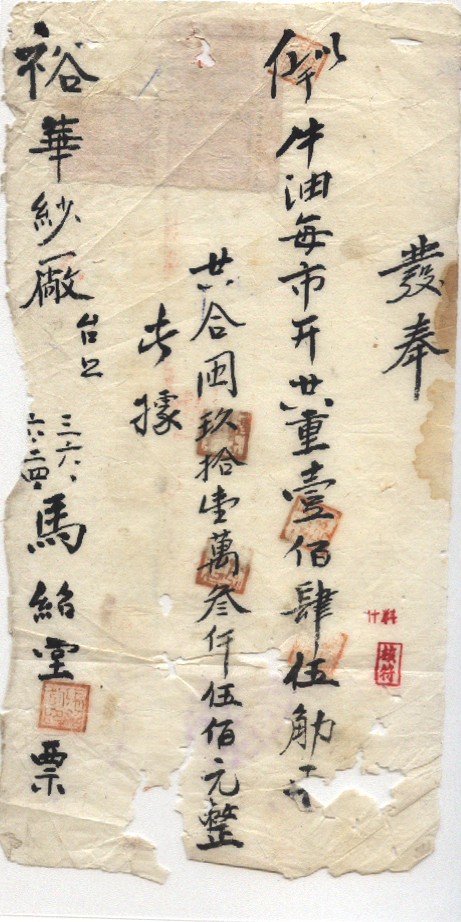 發奉
牛油每市斤共重壹佰肆伍觔
料
核符
共合國玖拾壹萬叁仟伍佰元整
此據
裕華紗廠台
三六、
六、二四、
馬紹堂票